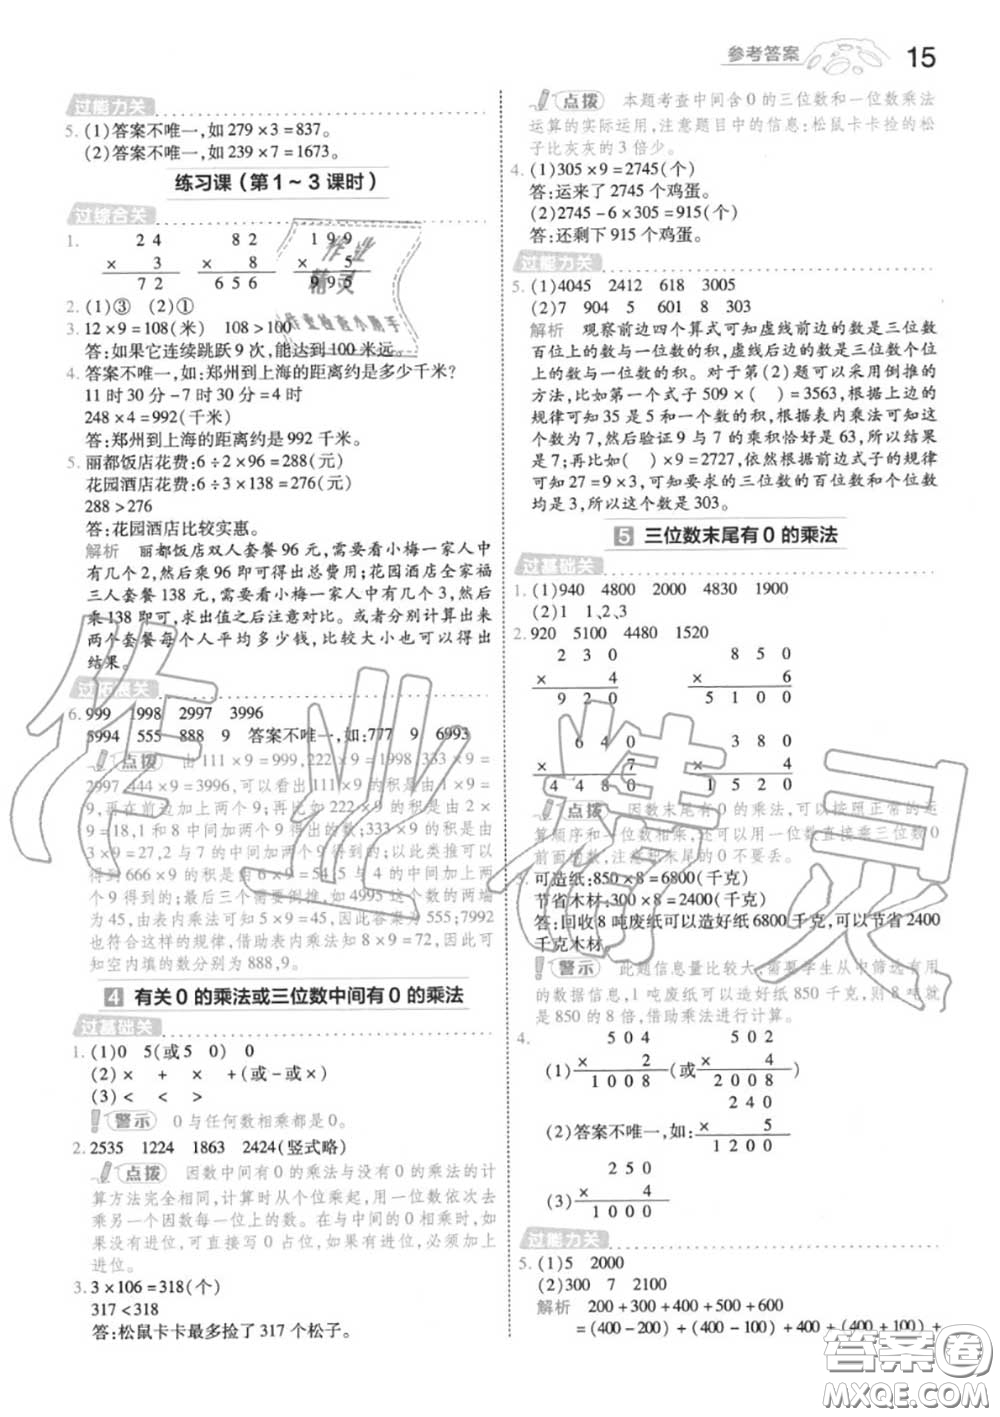 参考答案 15
过能力关
5. (1)答案不唯一,如 279×3=837。
(2)答案不唯一,如 239×7=1673。
练习课(第1~3课时)
过综合关
1. 2 4  8 2  1 9 9
× 3  × 8  × 5
7 2  6 5 6  9 9 5
2. (1)③ (2)①
3. 12×9=108(米) 108>100
答:如果它连续跳跃9次,能达到100米远。
4. 答案不唯一,如:郑州到上海的距离约是多少千米?
11时30分-7时30分=4时
248×4=992(千米)
答:郑州到上海的距离约是992千米。
5. 丽都饭店花费:6÷2×96=288(元)
花园酒店花费:6÷3×138=276(元)
288>276
答:花园酒店比较实惠。
解析 丽都饭店双人套餐96元,需要看小梅一家人中
有几个2,然后乘96即可得出总费用;花园酒店全家福
三人套餐138元,需要看小梅一家人中有几个3,然后
乘138即可,求出值之后注意对比。或者分别计算出
两个套餐每个人平均多少钱,比较大小也可以得出
结果。
过拓展关
6. 999 1998 2997 3996
5994 555 888 9 答案不唯一,如:777 9 6993
点拨 由111×9=999,222×9=1998,333×9=
2997,444×9=3996,可以看出111×9的积是1×9=
9,再在前边加上两个9;再比如222×9的积是由2×9
=18,1和8中间加两个9得出的;333×9的积是由
3×9=27,2与7的中间加两个9得到的;以此类推可以
得到666×9的积是由6×9=54,5与4的中间加两个
9得到的;最后三个需要倒推,如4995这个数的两边
为45,由表内乘法可知5×9=45,因此答案为555;7992
也符合这样的规律,借助表内乘法知8×9=72,因此可
知空内填的数分别为888,9。
4 有关0的乘法或三位数中间有0的乘法
过基础关
1. (1)0 5(或5 0) 0
(2)× + × +(或-或×)
(3)< < >
警示 0与任何数相乘都是0。
2. 2535 1224 1863 2424(竖式略)
点拨 因数中间有0的乘法与没有0的乘法的计
算方法完全相同,计算时从个位乘起,用一位数依次去
乘另一个因数每一位上的数。在与中间的0相乘时,如
果没有进位,可直接写0占位,如果有进位,必须加上
进位。
3. 3×106=318(个)
317<318
答:松鼠卡卡最多捡了317个松子。
点拨 本题考查中间含0的三位数和一位数乘法
运算的实际运用,注意题目中的信息:松鼠卡卡捡的松
子比灰灰的3倍少。
4. (1)305×9=2745(个)
答:运来了2745个鸡蛋。
(2)2745-6×305=915(个)
答:还剩下915个鸡蛋。
过能力关
5. (1)4045 2412 618 3005
(2)7 904 5 601 8 303
解析 观察前边四个算式可知虚线前边的数是三位数
百位上的数与一位数的积,虚线后边的数是三位数个位
上的数与一位数的积。对于第(2)题可以采用倒推的
方法,比如第一个式子509×( )=3563,根据上边的
规律可知35是5和一个数的积,根据表内乘法可知这
个数为7,然后验证9与7的乘积恰好是63,所以结果
是7;再比如( )×9=2727,依然根据前边式子的规律
可知27=9×3,可知要求的三位数的百位数和个位数
均是3,所以这个数是303。
5 三位数末尾有0的乘法
过基础关
1. (1)940 4800 2000 4830 1900
(2)1 1,2,3
2. 920 5100 4480 1520
2 3 0  8 5 0
× 4  × 6
9 2 0  5 1 0 0
6 4 0  3 8 0
× 7  × 4
4 4 8 0  1 5 2 0
点拨 因数末尾有0的乘法,可以按照正常的运
算顺序和一位数相乘,还可以用一位数直接乘三位数0
前面的数,注意积末尾的0不要丢。
3. 可造纸:850×8=6800(千克)
节省木材:300×8=2400(千克)
答:回收8吨废纸可以造好纸6800千克,可以节省2400
千克木材。
警示 此题信息量比较大,需要学生从中筛选有用
的数据信息,1吨废纸可以造好纸850千克,则8吨就
是850的8倍,借助乘法进行计算。
4. 5 0 4  5 0 2
(1) × 2 (或 × 4 )
1 0 0 8  2 0 0 8
2 4 0
(2)答案不唯一,如: × 5
1 2 0 0
2 5 0
(3) × 4
1 0 0 0
过能力关
5. (1)5 2000
(2)300 7 2100
解析 200+300+400+500+600
=(400-200)+(400-100)+400+(400+100)+
作业精灵
作业检查小助手
作业精灵
答案圈
MXQE.COM